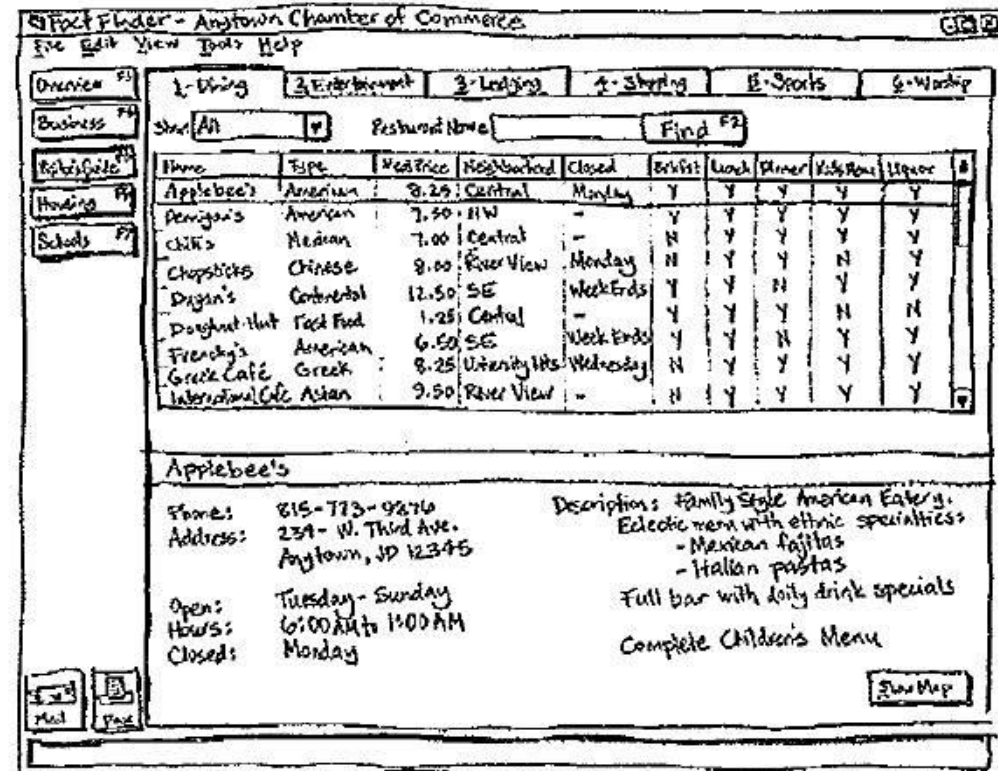 Fact Finder - Anytown Chamber of Commerce
File Edit View Tools Help
Overview F1
1-Dining 2-Entertainment 3-Lodging 4-Shopping 5-Sports 6-Worship
Business
Show All Restaurant Name Find F2
Name Type Med Price Neighborhood Closed Brkfst Lunch Dinner Kids Menu Liquor
Applebee's American 8.25 Central Monday Y Y Y Y Y
Housing
American 7.50 NW - Y Y Y Y Y
Schools F7
Chili's Mexican 7.00 Central - N Y Y Y Y
Chopsticks Chinese 8.00 River View Monday N Y Y N Y
Continental 12.50 SE WeekEnds Y Y N Y Y
Doughnut Hut Fast Food 1.25 Central - Y Y Y N N
Frenchy's American 6.50 SE Week Ends Y Y N Y Y
Greek Café Greek 8.25 Wednesday N Y Y Y Y
International Cafe Asian 9.50 River View - N Y Y Y Y
Applebee's
Phone: 815-773-9876
Address: 234- W. Third Ave.
Anytown, JD 12345
Open: Tuesday - Sunday
Hours: 6:00 AM to 1:00 AM
Closed: Monday
Description: Family Style American Eatery.
Eclectic menu with ethnic specialties:
- Mexican fajitas
- Italian pastas
Full bar with daily drink specials
Complete Children's Menu
Show Map
Mail